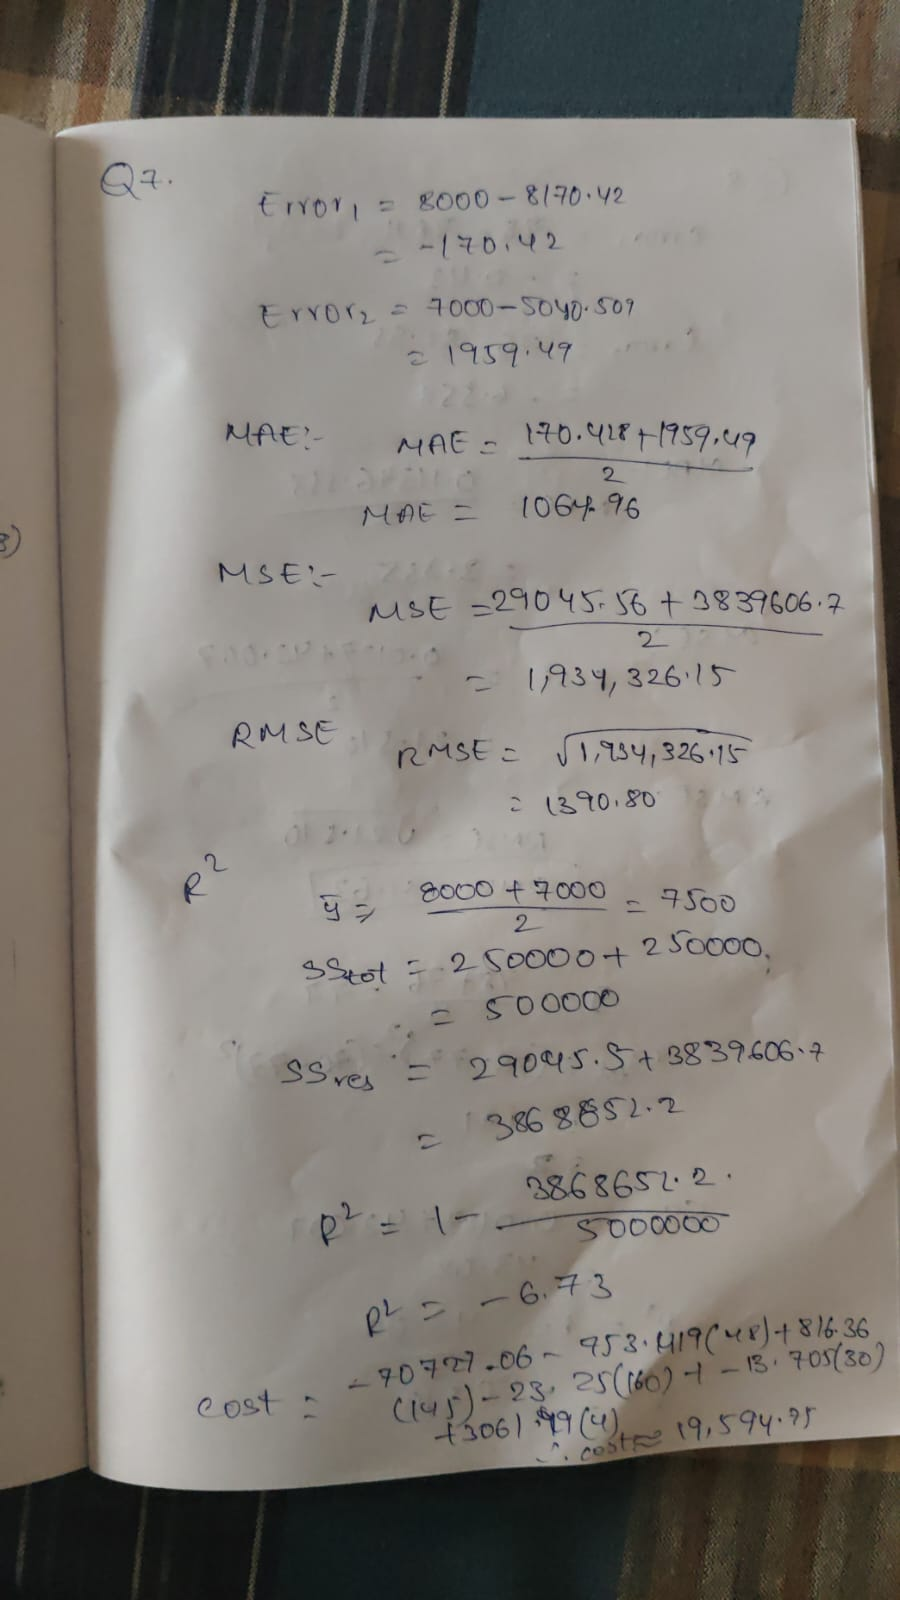 Q7.
Error1 = 8000 - 8170.42
= -170.42
Error2 = 7000 - 5040.509
= 1959.49
MAE:- MAE = 170.428 + 1959.49
2
MAE = 1064.96
MSE:-
MSE = 29045.56 + 3839606.7
2
= 1,934,326.15
RMSE
RMSE = √1,934,326.15
= 1390.80
R²
ȳ = 8000 + 7000 = 7500
2
SStot = 250000 + 250000
= 500000
SSres = 29045.5 + 3839606.7
= 3868652.2
R² = 1 - 3868652.2
5000000
R² = -6.73
cost = -70727.06 - 953.419(48) + 816.36
(145) - 23.25(160) + -13.705(30)
+3061.99(4)
∴ cost ≈ 19,594.75